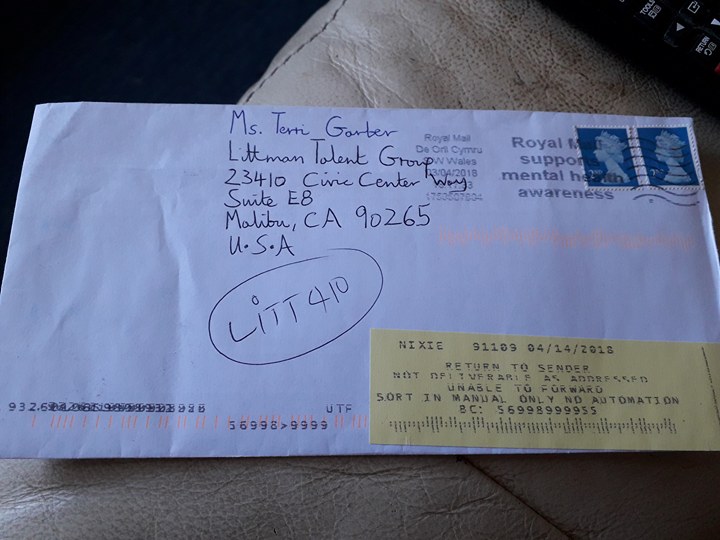 Ms. Terri Garber
Littman Talent Group
23410 Civic Center Way
Suite E8
Malibu, CA 90265
U.S.A
Royal Mail
De Orll Cymru
Wales
03/04/2018
Royal Mail
supports
mental health
awareness
LITT 410
NIXIE 91109 04/14/2018
RETURN TO SENDER
NOT DELIVERABLE AS ADDRESSED
UNABLE TO FORWARD
SORT IN MANUAL ONLY NO AUTOMATION
BC: 56998999955
UTF
56998>9999
TOOLS